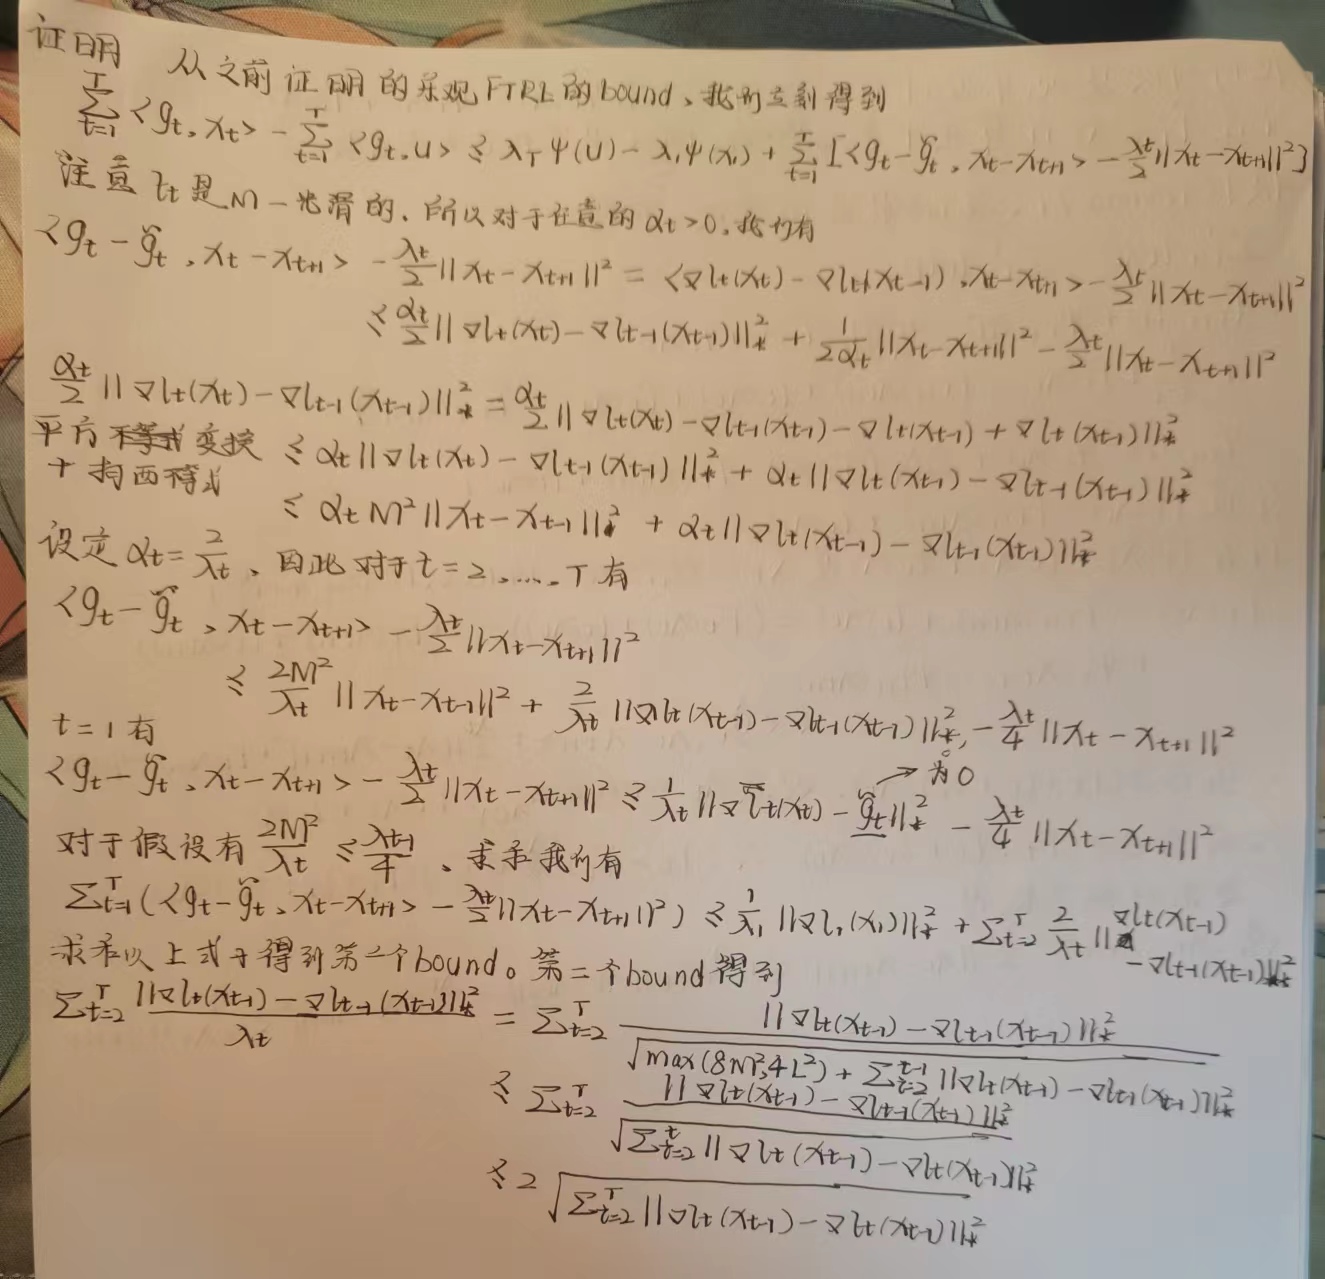 证明 从之前证明的乐观FTRL的bound、我们立刻得到
$\sum_{t=1}^{T}<g_t, x_t> - \sum_{t=1}^{T}<g_t, u> \leq \lambda_T \psi(u) - \lambda_1 \psi(x_1) + \sum_{t=1}^{T}[<g_t - \tilde{g}_t, x_t - x_{t+1}> - \frac{\lambda_t}{2}||x_t - x_{t+1}||^2]$
注意 $l_t$ 是M-光滑的、所以对于任意的 $\alpha_t > 0$,我们有
$<g_t - \tilde{g}_t, x_t - x_{t+1}> - \frac{\lambda_t}{2}||x_t - x_{t+1}||^2 = <\nabla l_t(x_t) - \nabla l_t(x_{t-1}), x_t - x_{t+1}> - \frac{\lambda_t}{2}||x_t - x_{t+1}||^2$
$\leq \frac{\alpha_t}{2}||\nabla l_t(x_t) - \nabla l_{t-1}(x_{t-1})||_*^2 + \frac{1}{2\alpha_t}||x_t - x_{t+1}||^2 - \frac{\lambda_t}{2}||x_t - x_{t+1}||^2$
$\frac{\alpha_t}{2}||\nabla l_t(x_t) - \nabla l_{t-1}(x_{t-1})||_*^2 = \frac{\alpha_t}{2}||\nabla l_t(x_t) - \nabla l_{t-1}(x_{t-1}) - \nabla l_t(x_{t-1}) + \nabla l_t(x_{t-1})||_*^2$
平方变换 $\leq \alpha_t||\nabla l_t(x_t) - \nabla l_{t-1}(x_{t-1})||_*^2 + \alpha_t||\nabla l_t(x_{t-1}) - \nabla l_{t-1}(x_{t-1})||_*^2$
+ 柯西不等式
$\leq \alpha_t M^2||x_t - x_{t-1}||^2 + \alpha_t||\nabla l_t(x_{t-1}) - \nabla l_{t-1}(x_{t-1})||_*^2$
设定 $\alpha_t = \frac{2}{\lambda_t}$、因此对于t=2、…、T有
$<g_t - \tilde{g}_t, x_t - x_{t+1}> - \frac{\lambda_t}{2}||x_t - x_{t+1}||^2$
$\leq \frac{2M^2}{\lambda_t}||x_t - x_{t-1}||^2 + \frac{2}{\lambda_t}||\nabla l_t(x_{t-1}) - \nabla l_{t-1}(x_{t-1})||_*^2 - \frac{\lambda_t}{4}||x_t - x_{t+1}||^2$
t=1有
→为0
$<g_t - \tilde{g}_t, x_t - x_{t+1}> - \frac{\lambda_t}{2}||x_t - x_{t+1}||^2 \leq \frac{1}{\lambda_t}||\nabla l_t(x_t) - \tilde{g}_t||_*^2 - \frac{\lambda_t}{4}||x_t - x_{t+1}||^2$
对于假设有 $\frac{2M^2}{\lambda_t} \leq \frac{\lambda_{t-1}}{4}$、求和我们有
$\sum_{t=1}^{T}(<g_t - \tilde{g}_t, x_t - x_{t+1}> - \frac{\lambda_t}{2}||x_t - x_{t+1}||^2) \leq \frac{1}{\lambda_1}||\nabla l_1(x_1)||_*^2 + \sum_{t=2}^{T}\frac{2}{\lambda_t}||\nabla l_t(x_{t-1})$
$- \nabla l_{t-1}(x_{t-1})||_*^2$
求和以上式子得到第一个bound。第二个bound得到
$\sum_{t=2}^{T}\frac{||\nabla l_t(x_{t-1}) - \nabla l_{t-1}(x_{t-1})||_*^2}{\lambda_t} = \sum_{t=2}^{T}\frac{||\nabla l_t(x_{t-1}) - \nabla l_{t-1}(x_{t-1})||_*^2}{\sqrt{max(8M^2, 4L^2) + \sum_{t=2}^{t-1}||\nabla l_t(x_{t-1}) - \nabla l_{t-1}(x_{t-1})||_*^2}}$
$\leq \sum_{t=2}^{T}\frac{||\nabla l_t(x_{t-1}) - \nabla l_{t-1}(x_{t-1})||_*^2}{\sqrt{\sum_{t=2}^{t}||\nabla l_t(x_{t-1}) - \nabla l_t(x_{t-1})||_*^2}}$
$\leq 2\sqrt{\sum_{t=2}^{T}||\nabla l_t(x_{t-1}) - \nabla l_t(x_{t-1})||_*^2}$